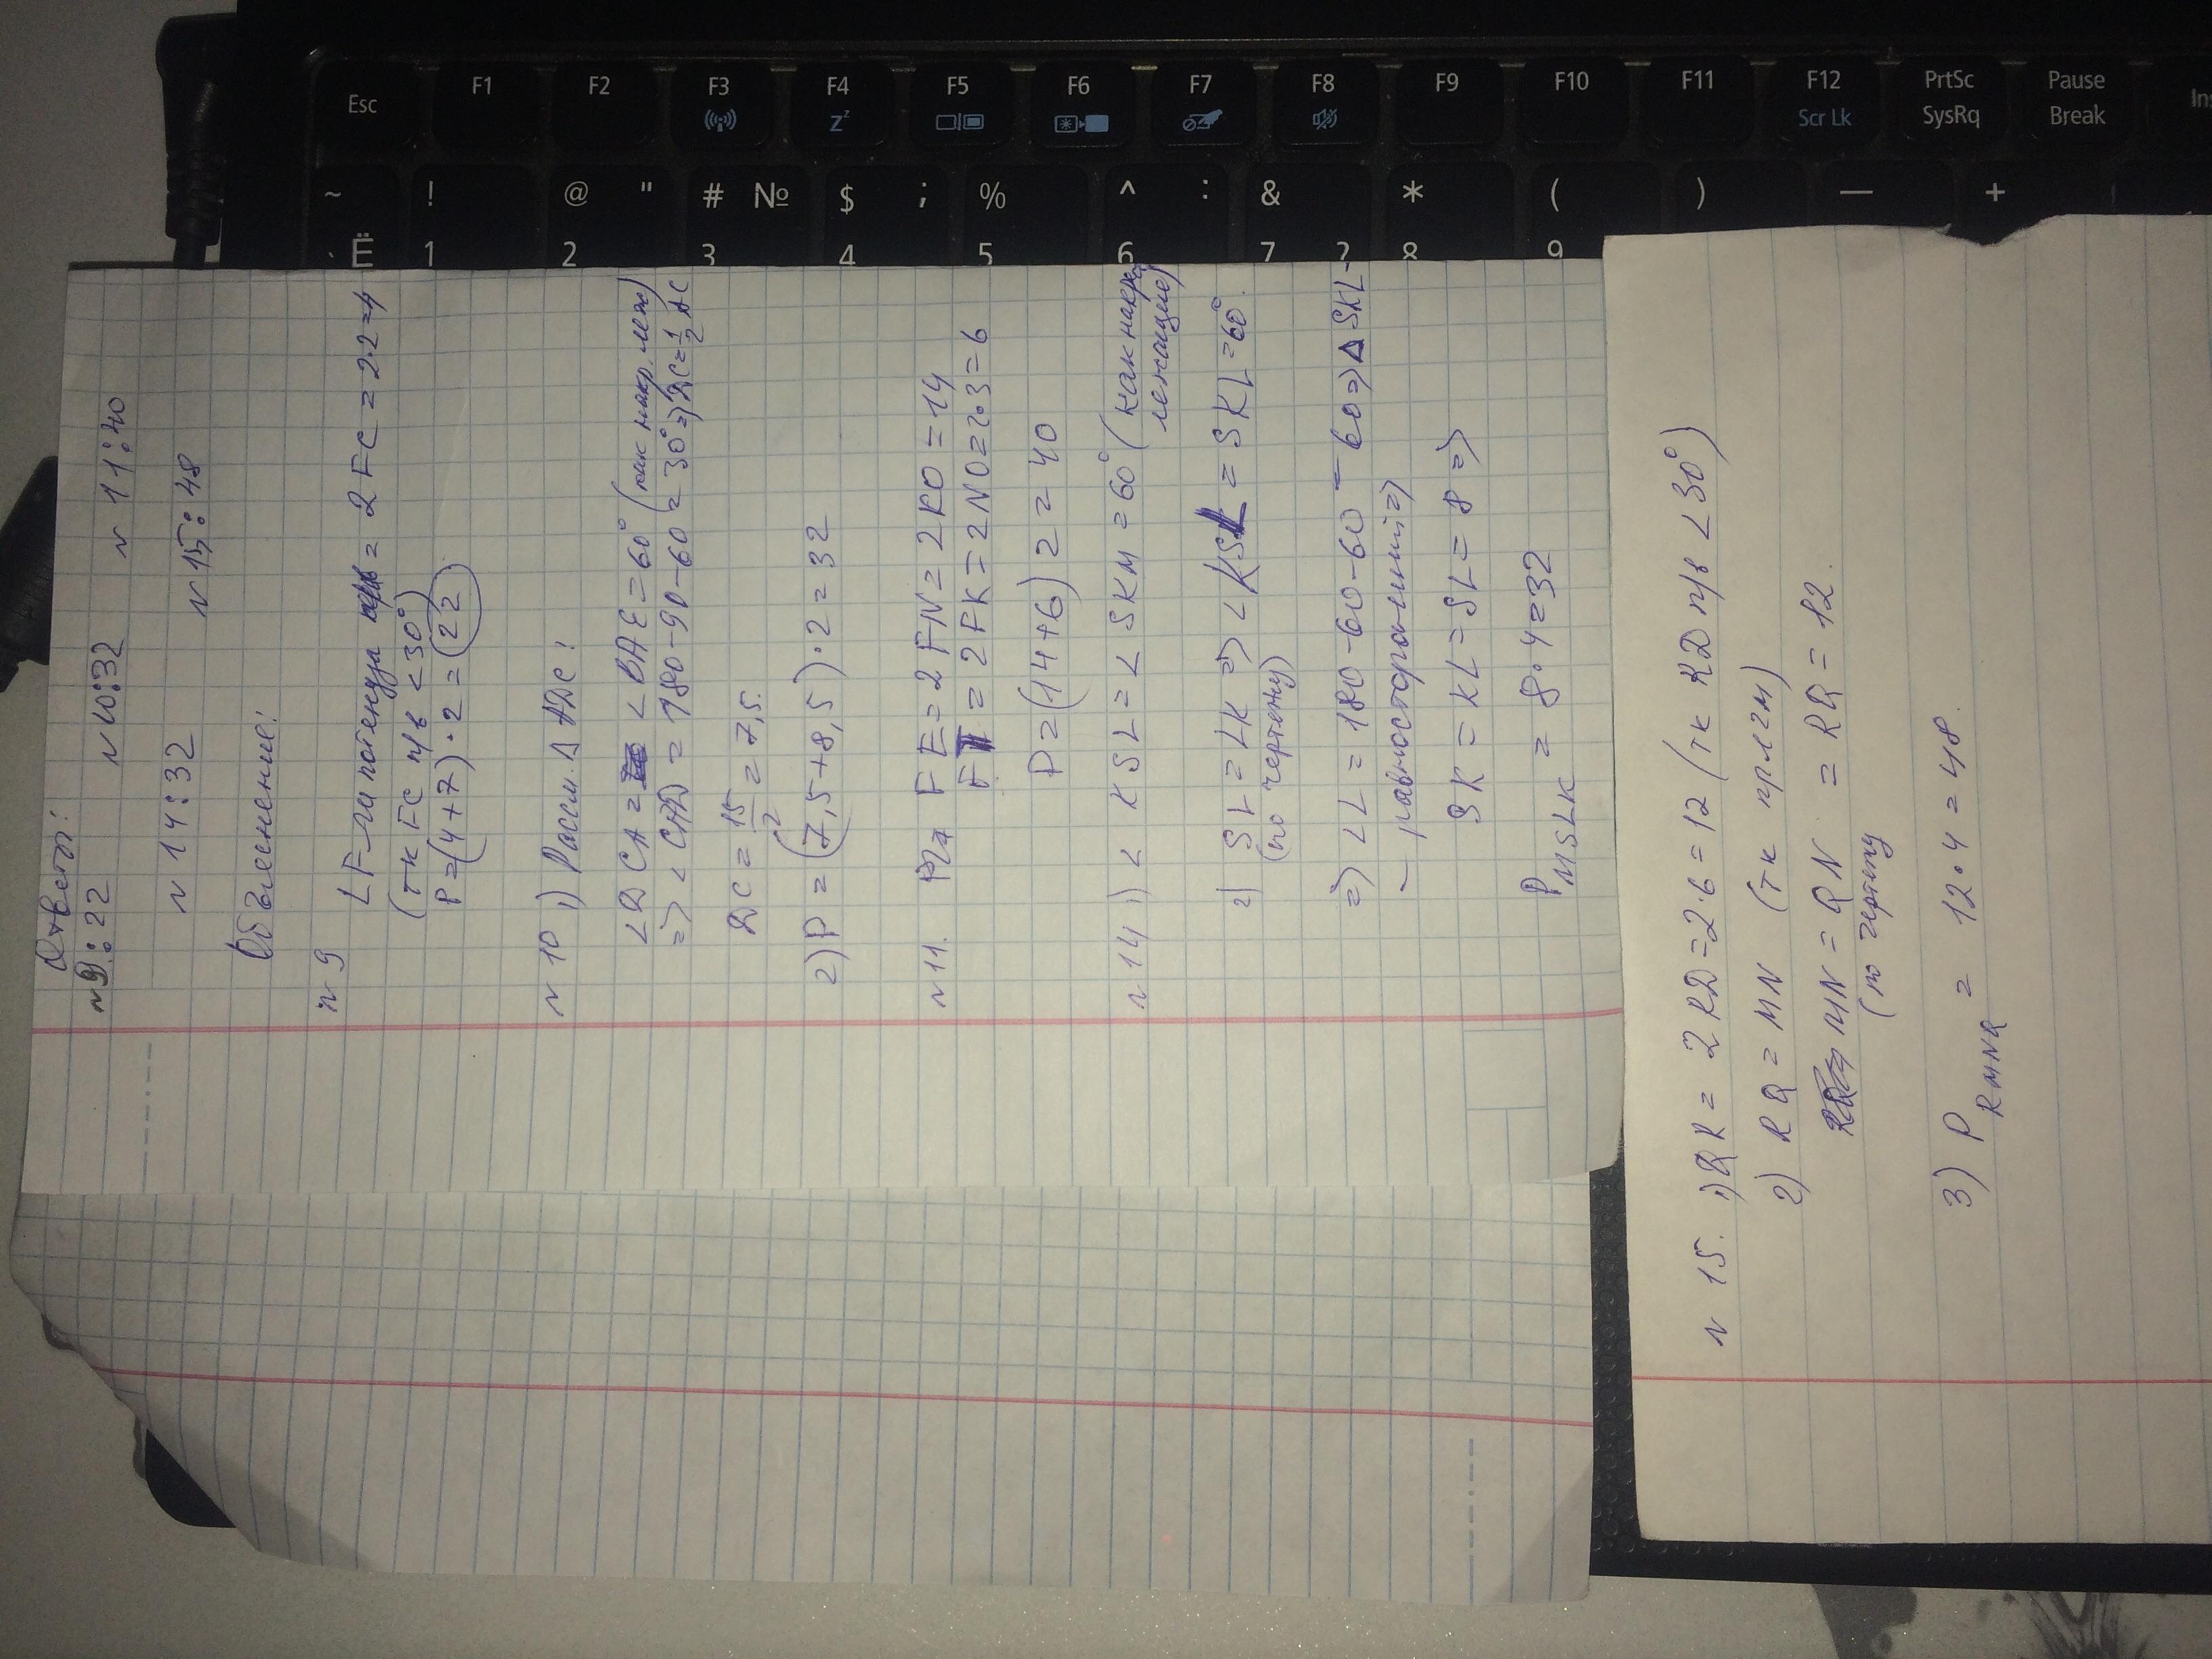 Esc F1 F2 F3 F4 F5 F6 F7 F8 F9 F10 F11 F12 PrtSc Pause
Zz Scr Lk SysRq Break Ins
~ ! @ " # № $ ; % ^ : & * ( ) — +
Ё 1 2 3 4 5 6 7 ? 8 9
Ответ:
n 9: 22 n 10: 32 n 11: 40
n 14: 32 n 15: 48
Объяснение:
n 9
LF-гипотенуза = 2 FC = 2·2=4
(тк FC п/в <30°)
P=(4+7)·2=(22)
n 10 1) Рассм. Δ ADC:
<DCA = <BAE=60° (как накр. леж)
=> <CAD = 180-90-60 = 30° => DC=1/2 AC
DC = 15/2 = 7,5.
2) P = (7,5+8,5)·2=32
n 11. FE=2FN=2KO=14
= 2FK=2NO=2·3=6
P=(14+6)2=40
n 14 1) < KSL=< SKM=60° (как накр
лежащие)
2) SL=LK => < KSL = SKL=60°.
(по чертежу)
=> <L=180-60-60=60=> Δ SKL-
- равносторонний=>
SK=KL=SL=8 =>
P MSLK = 8·4=32
n 15. 1) QR= 2RD=2·6=12 (тк RD п/в <30°)
2) RQ=MN (тк прлгм)
MN=QN = RQ=12.
(по чертежу
3) P RMNQ = 12·4=48.